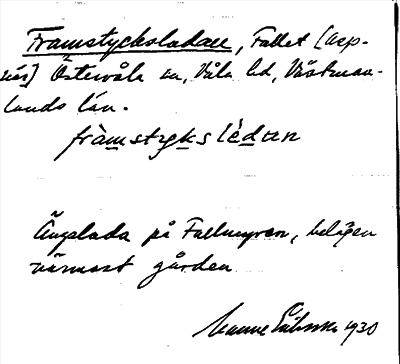 Framstycksladan, Fallet [uep-
nis] Östervåla sn, Våla hd, Västman-
lands län.
fràmstykslèdan
Änglada på Fallmyren, belägen
närmast gården
1930